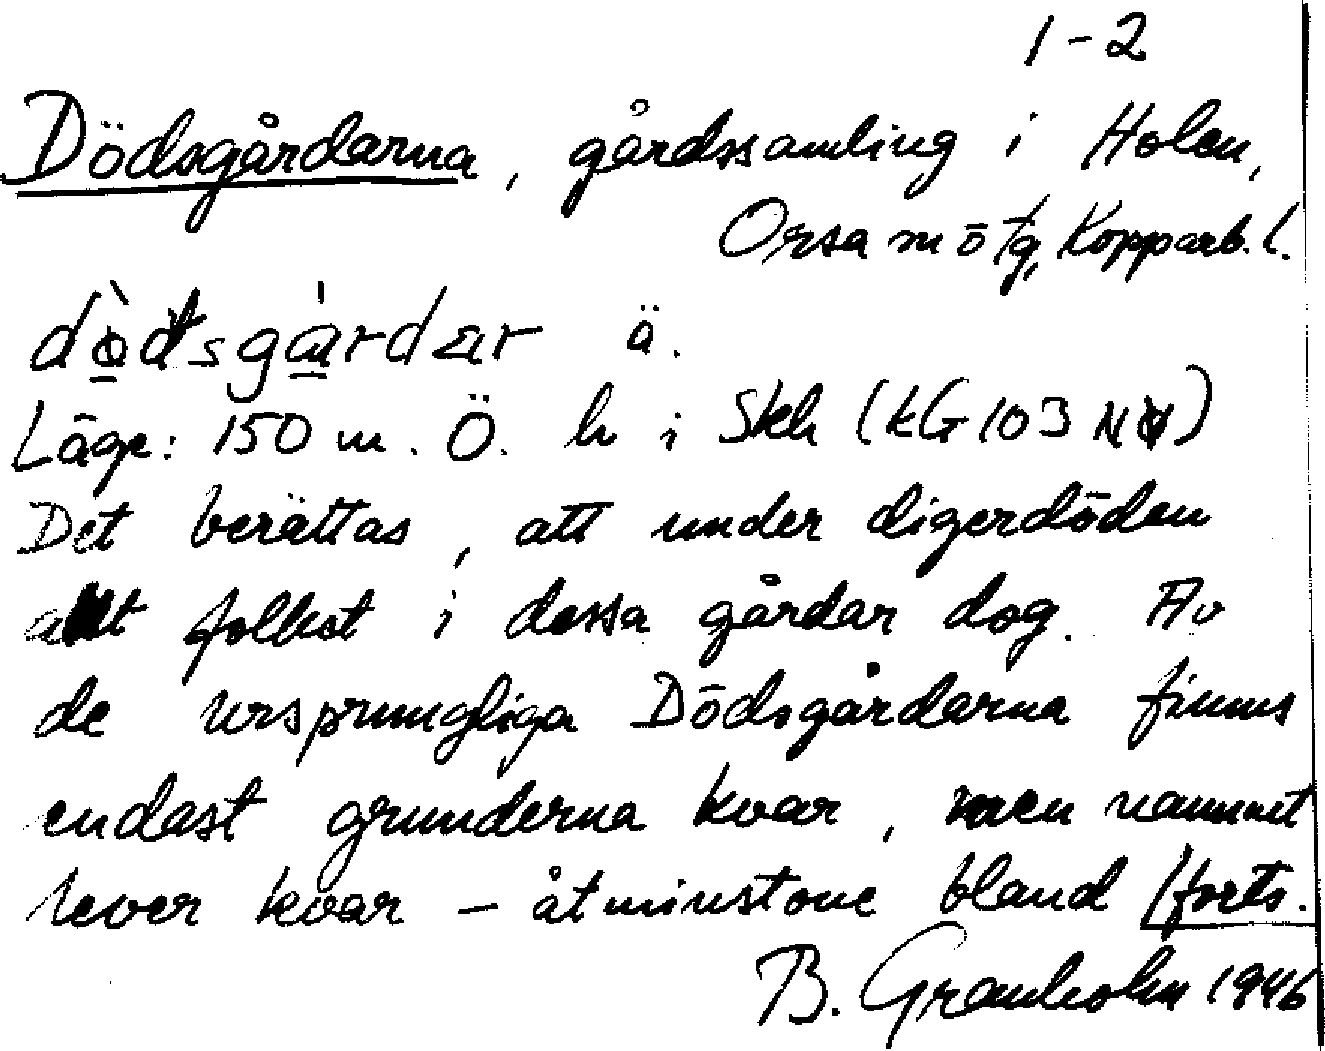 1-2
Dödsgårdarna, gårdssamling i Holen,
Orsa sn o tg, Kopparb. l.
dò̱dsgá̱rdar ä.
Läge: 150 m. Ö. h i Skh (kG 103 NV)
Det berättas, att under digerdöden
allt folket i dessa gårdar dog. Av
de ursprungliga Dödsgårdarna finns
endast grunderna kvar, men namnet
lever kvar – åtminstone bland /forts.
B. Granholm 1946